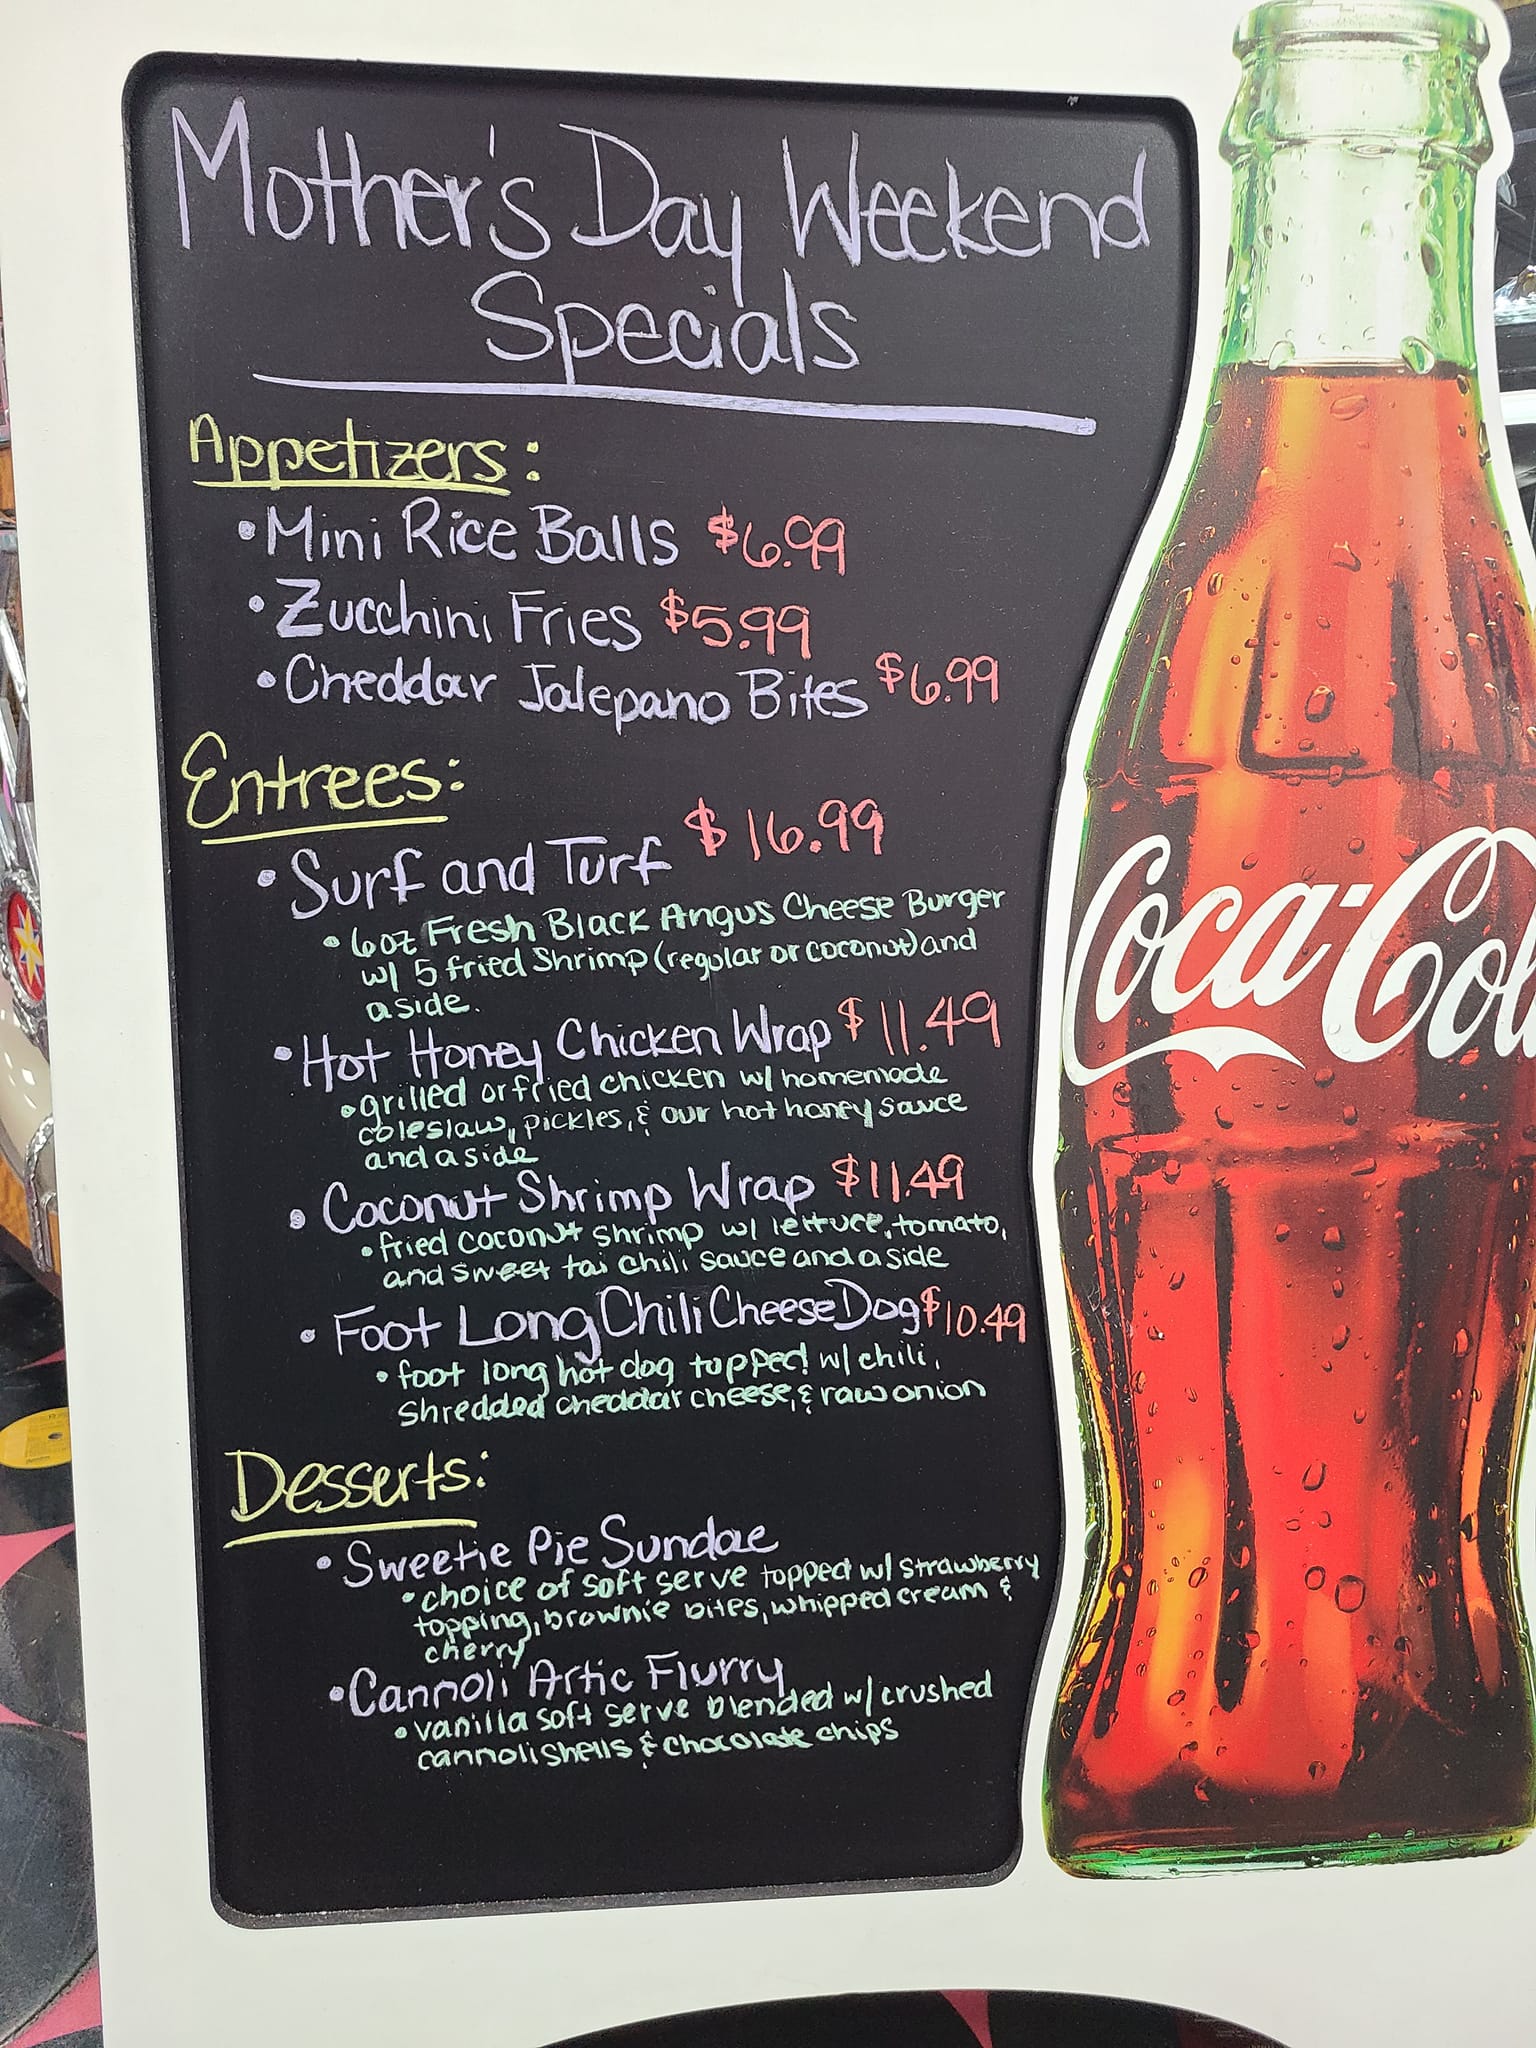 Mother's Day Weekend
Specials
Appetizers:
•Mini Rice Balls $6.99
•Zucchini Fries $5.99
•Cheddar Jalepano Bites $6.99
Entrees:
•Surf and Turf $16.99
•6oz Fresh Black Angus Cheese Burger
w/ 5 fried Shrimp (regular or coconut) and
a side.
•Hot Honey Chicken Wrap $11.49
•grilled or fried chicken w/ homemade
coleslaw, pickles, & our hot honey sauce
and a side
•Coconut Shrimp Wrap $11.49
•fried coconut shrimp w/ lettuce, tomato,
and sweet tai chili sauce and a side
•Foot Long Chili Cheese Dog $10.49
•foot long hot dog topped w/ chili,
shredded cheddar cheese, & raw onion
Desserts:
•Sweetie Pie Sundae
•choice of soft serve topped w/ strawberry
topping, brownie bites, whipped cream &
cherry
•Cannoli Artic Flurry
•vanilla soft serve blended w/ crushed
cannoli shells & chocolate chips
Coca-Col